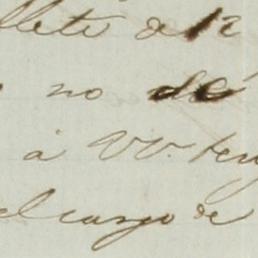 de 12
no de
á VV. ten
el cargo de